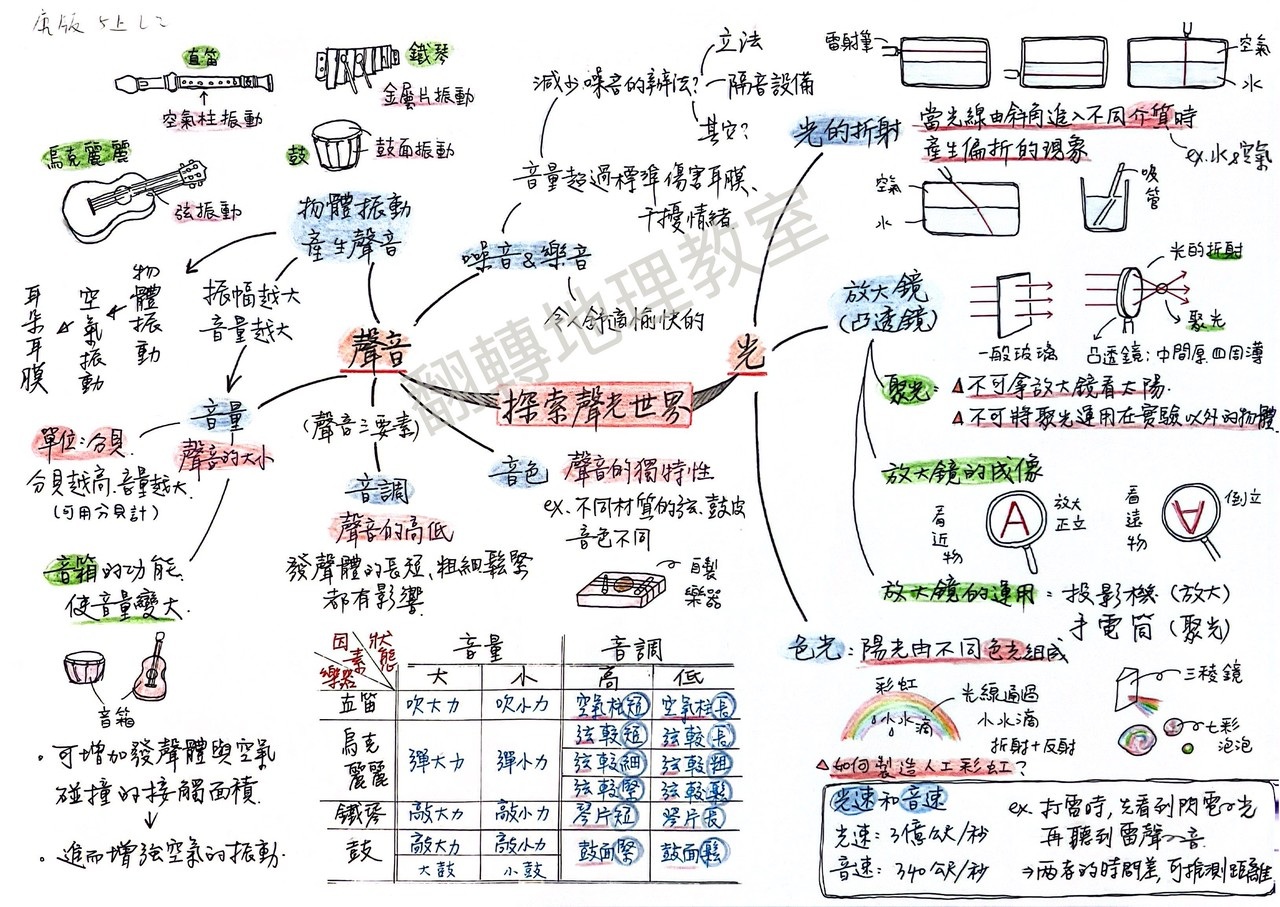 康版 5上 L2
直笛
空氣柱振動
鐵琴
金屬片振動
烏克麗麗
弦振動
鼓
鼓面振動
物體振動
產生聲音
物體振動
空氣振動
耳朵耳膜
振幅越大
音量越大
減少噪音的辦法?
立法
隔音設備
其它?
音量超過標準傷害耳膜、
干擾情緒
噪音&樂音
令人舒適愉快的
聲音
(聲音三要素)
探索聲光世界
光
音量
聲音的大小
單位:分貝
分貝越高、音量越大
(可用分貝計)
音箱的功能
使音量變大
音箱
•可增加發聲體與空氣
碰撞的接觸面積
↓
•進而增強空氣的振動
音調
聲音的高低
發聲體的長短、粗細鬆緊
都有影響
音色
聲音的獨特性
ex、不同材質的弦、鼓皮
音色不同
自製
樂器
因素 狀態
樂器
音量 音調
大 小 高 低
直笛 吹大力 吹小力 空氣柱短 空氣柱長
烏克麗麗 彈大力 彈小力 弦較短 弦較長
弦較細 弦較粗
弦較緊 弦較鬆
鐵琴 敲大力 敲小力 琴片短 琴片長
鼓 敲大力 敲小力 鼓面緊 鼓面鬆
大鼓 小鼓
光的折射
雷射筆
空氣
水
當光線由斜角進入不同介質時
產生偏折的現象
ex.水&空氣
空氣
水
吸管
放大鏡
(凸透鏡)
一般玻璃
光的折射
聚光
凸透鏡:中間厚四周薄
聚光:△不可拿放大鏡看太陽.
△不可將聚光運用在實驗以外的物體.
放大鏡的成像
看近物
A
放大
正立
看遠物
A
倒立
放大鏡的運用:投影機(放大)
手電筒(聚光)
色光:陽光由不同色光組成
彩虹
小水滴
光線通過
小水滴
折射+反射
三稜鏡
七彩
泡泡
△如何製造人工彩虹?
光速和音速
光速:3億公尺/秒
音速:340公尺/秒
ex.打雷時,先看到閃電→光
再聽到雷聲→音
⇒兩者的時間差,可推測距離
翻轉地理教室